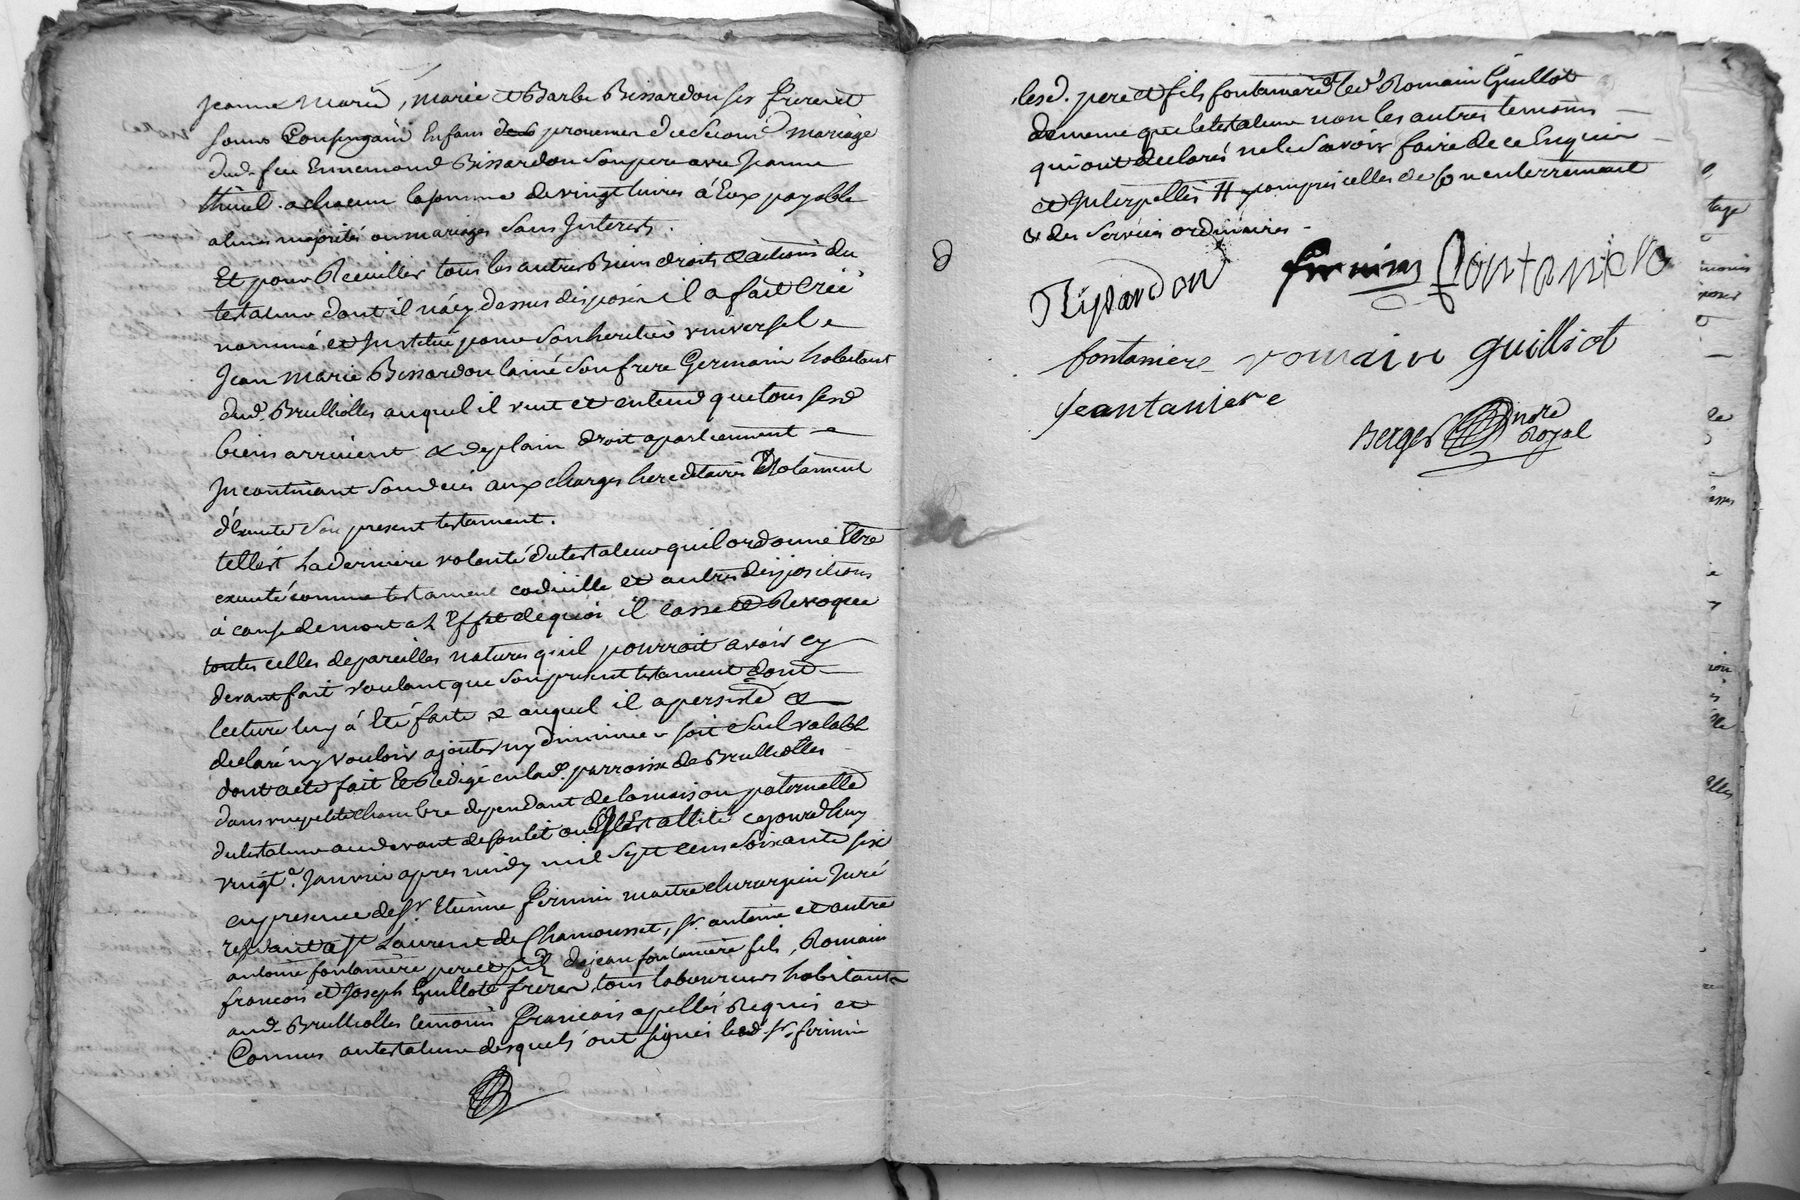 Jeanne Marie, Marie et Barbe Bissardon ses freres et
sœurs Consanguin Enfans provenus du second mariage
dud. feu Ennemond Bissardon son pere avec Jeanne
thivel a chacun la somme de vingt livres à Eux payable
a leurs majorités ou mariages Sans Interets.
Et pour Receuillir tous les autres Biens droits & actions du
testateur dont il n'a cy dessus disposé il a fait Créé
nommé et Institué pour Son heritier universel
Jean Marie Bissardon lainé Son frere Germain habitant
aud. Brullioles auquel il veut et entend que tous sesd
biens arrivent & de plain droit apartiennent
Incontinant Son deces aux charges hereditaires Et Notament
d'Executer Son present testament.
telle est La derniere volonté du testateur qu'il ordonne Etre
executé comme testament codicille et autres dispositions
à cause de mort a L'Effet de quoi il casse et Revoque
toutes celles de pareilles natures qu'il pourroit avoir cy
devant fait voulant que Son present testament dont
lecture luy à Eté faite & auquel il a persisté &
declaré n'y vouloir ajouter ny diminuer soit Seul valable
dont acte fait Et Redigé en lad. parroisse de Brullioles
dans une petite chambre dependant de la maison paternelle
du testateur au devant de son lit ou Il Est allité cejourd'huy
vingt. Janvier apres midy mil Sept Cens Soixante six
en presence de Sr. Etienne firmin maitre chirurgien Juré
residant a St Laurent de Chamousset, Sr. antoine et autre
antoine fontaniere pere et fils, jean fontaniere fils, Romain
francois et Joseph Guillot freres tous laboureurs habitants
aud. Brullioles temoins francois apellés Requis et
Connus au testateur desquels ont signé led. Sr. firmin
lesd. pere et fils fontaniere et led. Romain Guillot
de meme que le testateur non les autres temoins
qui ont declarés ne le Savoir faire de ce Enquis
et Interpellés # y compris celles de Son enterrement
& des Services ordinaires
Bisardon firmin fontaniere
fontaniere romain guilliot
fontaniere
Berger nore
Royal